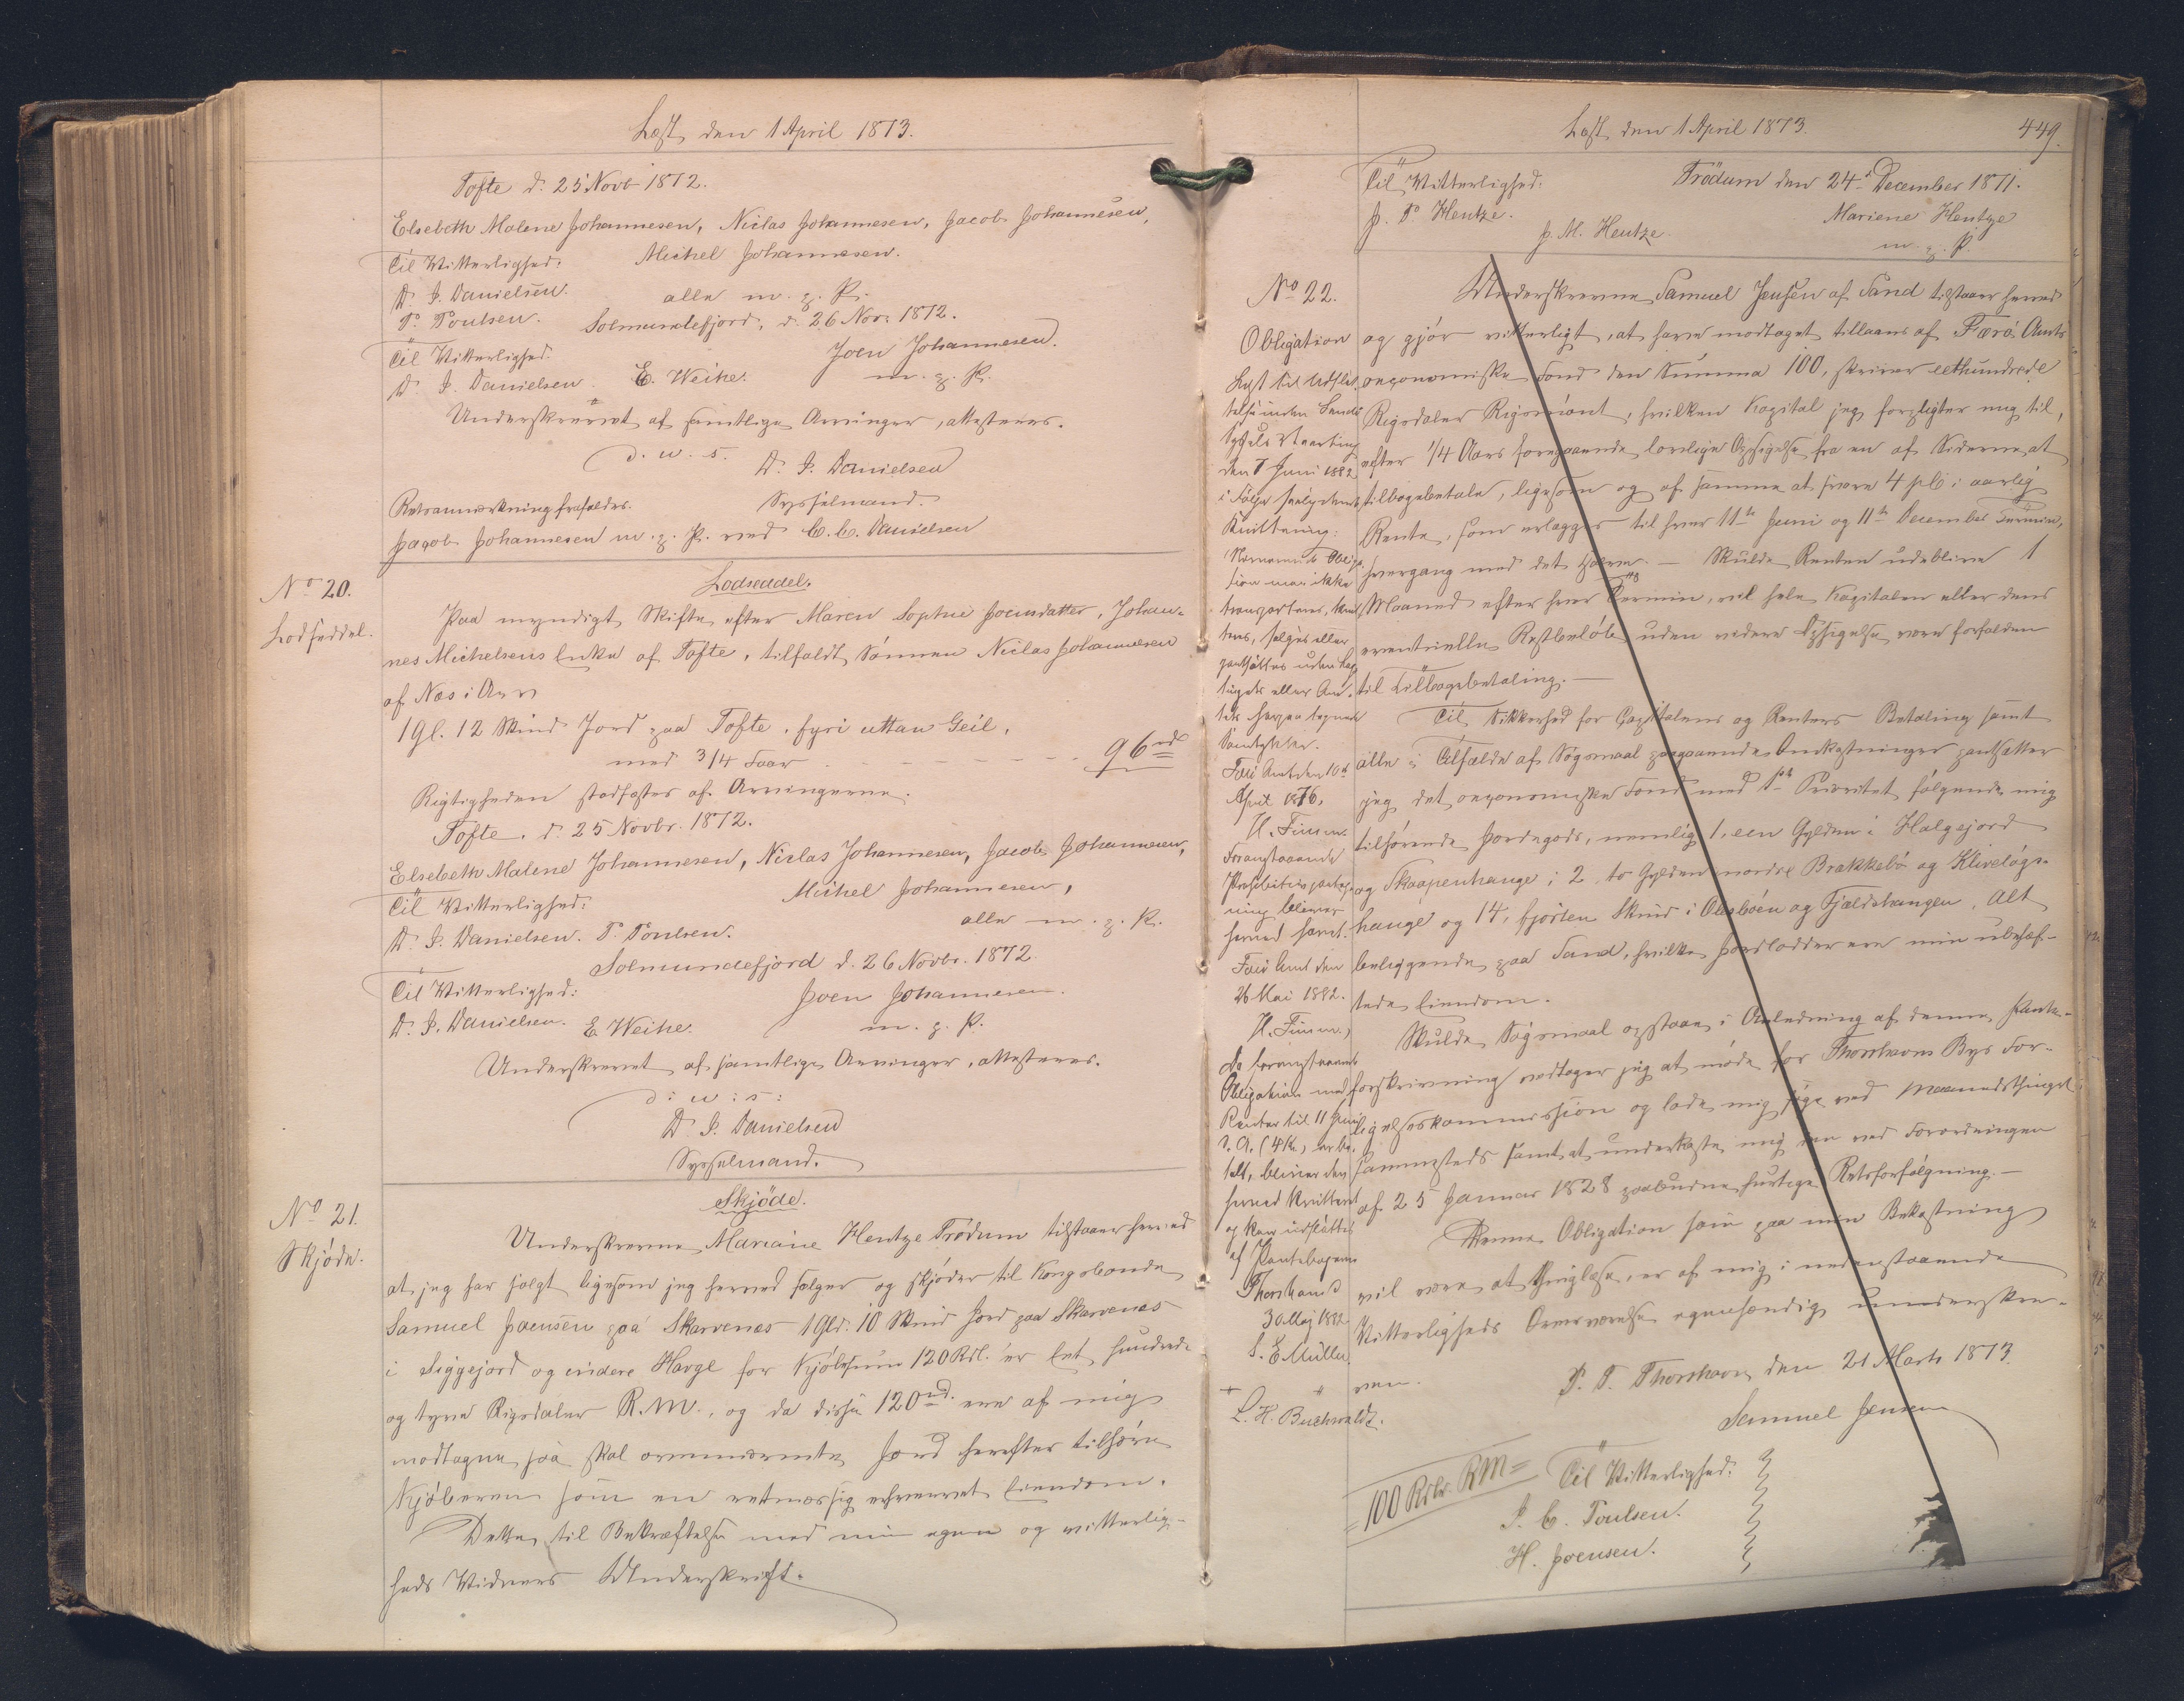 Læst den 1 April 1873.
Tofte d. 25 Novb 1872.
Elsebeth Malene Johannesen, Niclas Johannesen, Jacob Johannesen,
Til Vitterlighed: Michel Johannesen.
D. J. Danielsen. alle m. g. P.
P. Poulsen. Solmundefjord, d. 26 Nov. 1872.
Til Vitterlighed. Joen Johannesen.
D. J. Danielsen. E. Weihe. m. g. P.
Underskrevet af samtlige Arvinger, attesteres.
d. u. s.
D. J. Danielsen
Retsanmærkning frafaldes. Sysselmand.
Jacob Johannesen m. g. P. ved C. C. Danielsen
No 20.
Lodseddel.
Lodseddel.
Paa myndigt Skifte efter Maren Sophie Joensdatter, Johan-
nes Michelsens Enke af Tofte, tilfaldt Sønnen Niclas Johannesen
af Næs i Arv
1 Gl. 12 Skind Jord paa Tofte, fyri uttan Geil,
med 3/4 Faar - - - - - - 96 rd
Rigtigheden stadfæstes af Arvingerne.
Tofte. d. 25 Novbr. 1872.
Elsebeth Malene Johannesen, Niclas Johannesen, Jacob Johannesen,
Til Vitterlighed: Michel Johannesen,
D. J. Danielsen. P. Poulsen. alle m. g. P.
Solmundefjord d. 26 Novbr. 1872.
Til Vitterlighed: Joen Johannesen.
D. J. Danielsen. E. Weihe. m. g. P.
Underskrevet af samtlige Arvinger, attesteres.
d: u: s:
D. J. Danielsen
Sysselmand.
No 21.
Skjøde.
Skjøde.
Underskrevne Mariane Hentze Trødum tilstaaer herved
at jeg har solgt ligesom jeg herved sælger og skjøder til Kongsbonde
Samuel Joensen paa Skarvenæs 1 Gld. 10 Skind Jord paa Skarvenæs
i Siggejord og indere Havge for Kjøbesum 120 Rdl. er Et hundrede
og tyve Rigsdaler R.M., og da disse 120 rd. ere af mig
modtagne, saa skal ovennævnte Jord herefter tilhøre
Kjøberen som en retmæssig erhvervet Eiendom.
Dette til Bekræftelse med min egen og vitterlig-
heds Vidners Underskrift.
Læst den 1 April 1873. 449.
Til Vitterlighed: Trödum den 24 December 1871.
J. P. Hentze. Mariene Hentze
J. M. Hentze. m. g. P.
No 22.
Obligation
Læst til Udslet-
telse inden Sandø
Syssels Vaarting
den 7 Juni 1882
i Følge saalydende
Kvittering:
Nærværende Obliga-
tion maa ikke
transporteres, kvit-
teres, sælges eller
pantsættes uden
eller Am-
tets herpaa tegnede
Samtykke.
Færø Amt den 10
April 1876.
H. Finsen
Foranstaaende
bliver
herved hævet.
Færø Amt den
26 Mai 1882.
H. Finsen,
Da foranstaaende
Obligation med
Renter til 11 Juni
d. A. (4 Kr) er be-
talt, bliver den
herved kvitteret
og kan udslettes
af Pantebogen.
Thorshavn d
30 Maj 1882
S. E. Müller.
L. H. Buchwaldt.
Underskrevne Samuel Jensen af Sand tilstaaer herved
og gjør vitterligt, at have modtaget tillaans af Færø Amts
oeconomiske Fond den Summa 100, skriver eethundrede
Rigsdaler Rigsmønt, hvilken Kapital jeg forpligter mig til,
efter 1/4 Aars foregaaende lovlige Opsigelse fra en af Siderne, at
tilbagebetale, ligesom og af samme at svare 4 pC i aarlig
Rente, som erlægges til hver 11te Juni og 11te December Termin,
hvergang med det Halve. — Skulde Renten udeblive 1
Maaned efter hver Termin, vil hele Kapitalen eller dens
eventuelle Restbeløb, uden videre Opsigelse være forfalden
til Tilbagebetaling. —
Til Sikkerhed for Capitalens og Renters Betaling samt
alle i Tilfælde af Søgsmaal paagaaende Omkostninger pantsætter
jeg det oeconomiske Fond med 1ste Prioritet følgende mig
tilhørende Jordegods, nemlig 1, een Gylden i Halgejord
og Skaapenhauge; 2, to Gylden nordre Brakkebø og Kliveløgs-
hauge og 14, fjorten Skind i Olesbøen og Fjældshaugen, Alt
beliggende paa Sand, hvilke Jordlodder ere min ubehæf-
tede Eiendom.
Skulde Søgsmaal opstaae i Anledning af denne Pante-
forskrivning vedtager jeg at møde for Thorshavns Bys For-
ligelseskommission og lade mig søge ved Maanedsthinget
sammesteds samt at underkaste mig den ved Forordningen
af 25 Januar 1828 paabudne hurtige Retsforfølgning. —
Denne Obligation som paa min Bekostning
vil være at thinglæse, er af mig i nedenstaaende
Vitterligheds Overværelse egenhændig underskre-
ven.
P. T. Thorshavn den 21 Marts 1873.
Samuel Jensen
100 Rdlr. RM= Til Vitterlighed:
J. C. Poulsen.
H. Joensen.